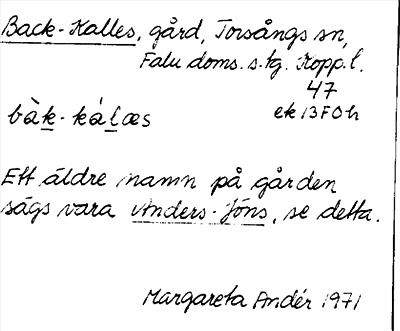 Back-Kalles, gård, Torsångs sn,
Falu doms.s.tg. Kopp.l.
47
bàk-kálæs ek 13 F 0 h
Ett äldre namn på gården
sägs vara Anders-Jöns, se detta.
Margareta Andér 1971